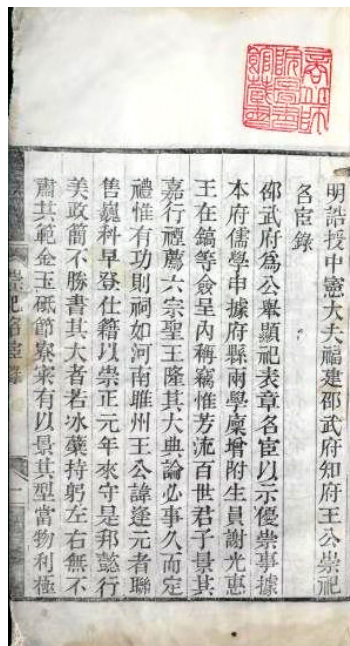 明誥授中憲大夫福建邵武府知府王公崇祀
名宦錄
邵武府為公舉顯祀表章名宦以示優崇事據
本府儒學申據府縣兩學廩增附生員謝光惠
王在鎬等僉呈內稱竊惟芳流百世君子景其
嘉行禋薦六宗聖王隆其大典論必事久而定
禮惟有功則祠如河南睢州王公諱逢元者聯
售巍科早登仕籍以崇正元年來守是邦懿行
美政簡不勝書其大者若冰蘗持躬左右無不
肅其範金玉砥節寮寀有以景其型當物利極
崇祀名宦錄
一